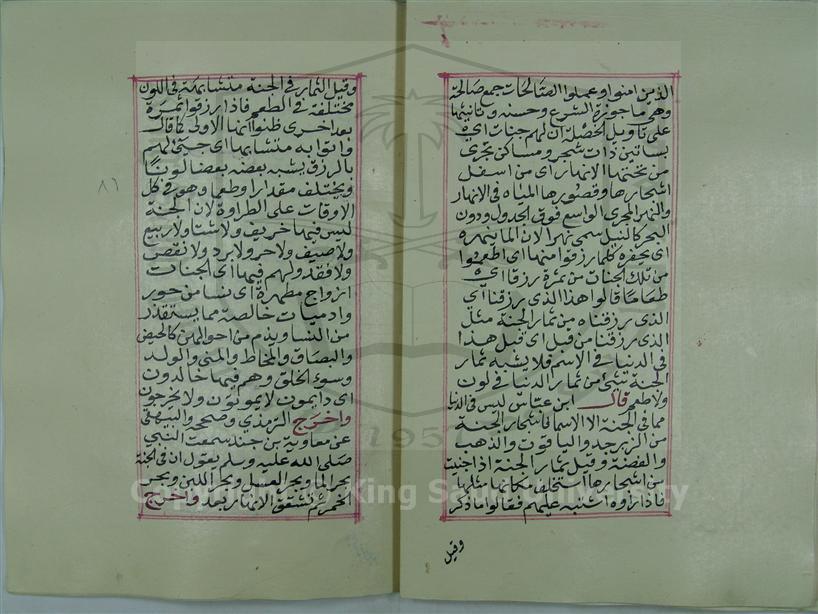 الذين امنوا وعملوا الصالحات جمع صالحة
وهي ما جوزة الشرع وحسنه وتانيثها
على تاويل الخصلة ان لهم جنات اي
بساتين ذات شجر ومساكن تجري
من تحتها الانهار اي من اسفل
اشجارها وقصورها المياه في الانهار
والنهر المجرى الواسع فوق الجدول ودون
البحر كالنيل سمى نهرا لان الما ينهره
اي يحفره كلما رزقوا منها اي اطعموا
من تلك الجنات من ثمرة رزقا اي
طعاما قالوا هذا الذي رزقنا اي
الذي رزقناه من ثمار الجنة مثل
الذي رزقنا من قبل اي قبل هذا
في الدنيا في الاسم فلا يشبه ثمار
الجنة شيئ من ثمار الدنيا في لون
ولا طعم قال ابن عباس ليس في الدنيا
مما في الجنة الا الاسما فاشجار الجنة
من الزبرجد والياقوت والذهب
والفضة وقيل ثمار الجنة اذا جنيت
من اشجارها استخلف مكانها مثلها
فاذا راوه اشتبه عليهم فقالوا ما ذكر
وقيل
وقيل الثمار في الجنة متشابهة في اللون
مختلفة في الطعم فاذا رزقوا ثمرة
بعد اخرى ظنوا انها الاولى كما قال
واتوا به متشابها اي جيئ لهم
بالرزق يشبه بعضه بعضا لونا
ويختلف مقدارا وطعما وهو في كل
الاوقات على الطراوة لان الجنة
ليس فيها خريف ولا شتا ولا ربيع
ولا صيف ولا حر ولا برد ولا نقص
ولا فقد ولهم فيها اي الجنات
ازواج مطهرة اي نسا من حور
وادميات خالصة مما يستقذر
من النسا ويذم من احوالهن كالحيض
والبصاق والمخاط والمنى والولد
وسوء الخلق وهم فيها خالدون
اي دايمون لا يموتون ولا يخرجون
واخرج الترمذي وصححه والبيهقى
عن معاوية بن سمعت النبي
صلى الله عليه وسلم يقول ان في الجنة
بحر الما وبحر العسل وبحر اللبن وبحر
الخمر ثم تشقق الانهار بعد واخرج
٨٦
Copyright © King Saud University
1957